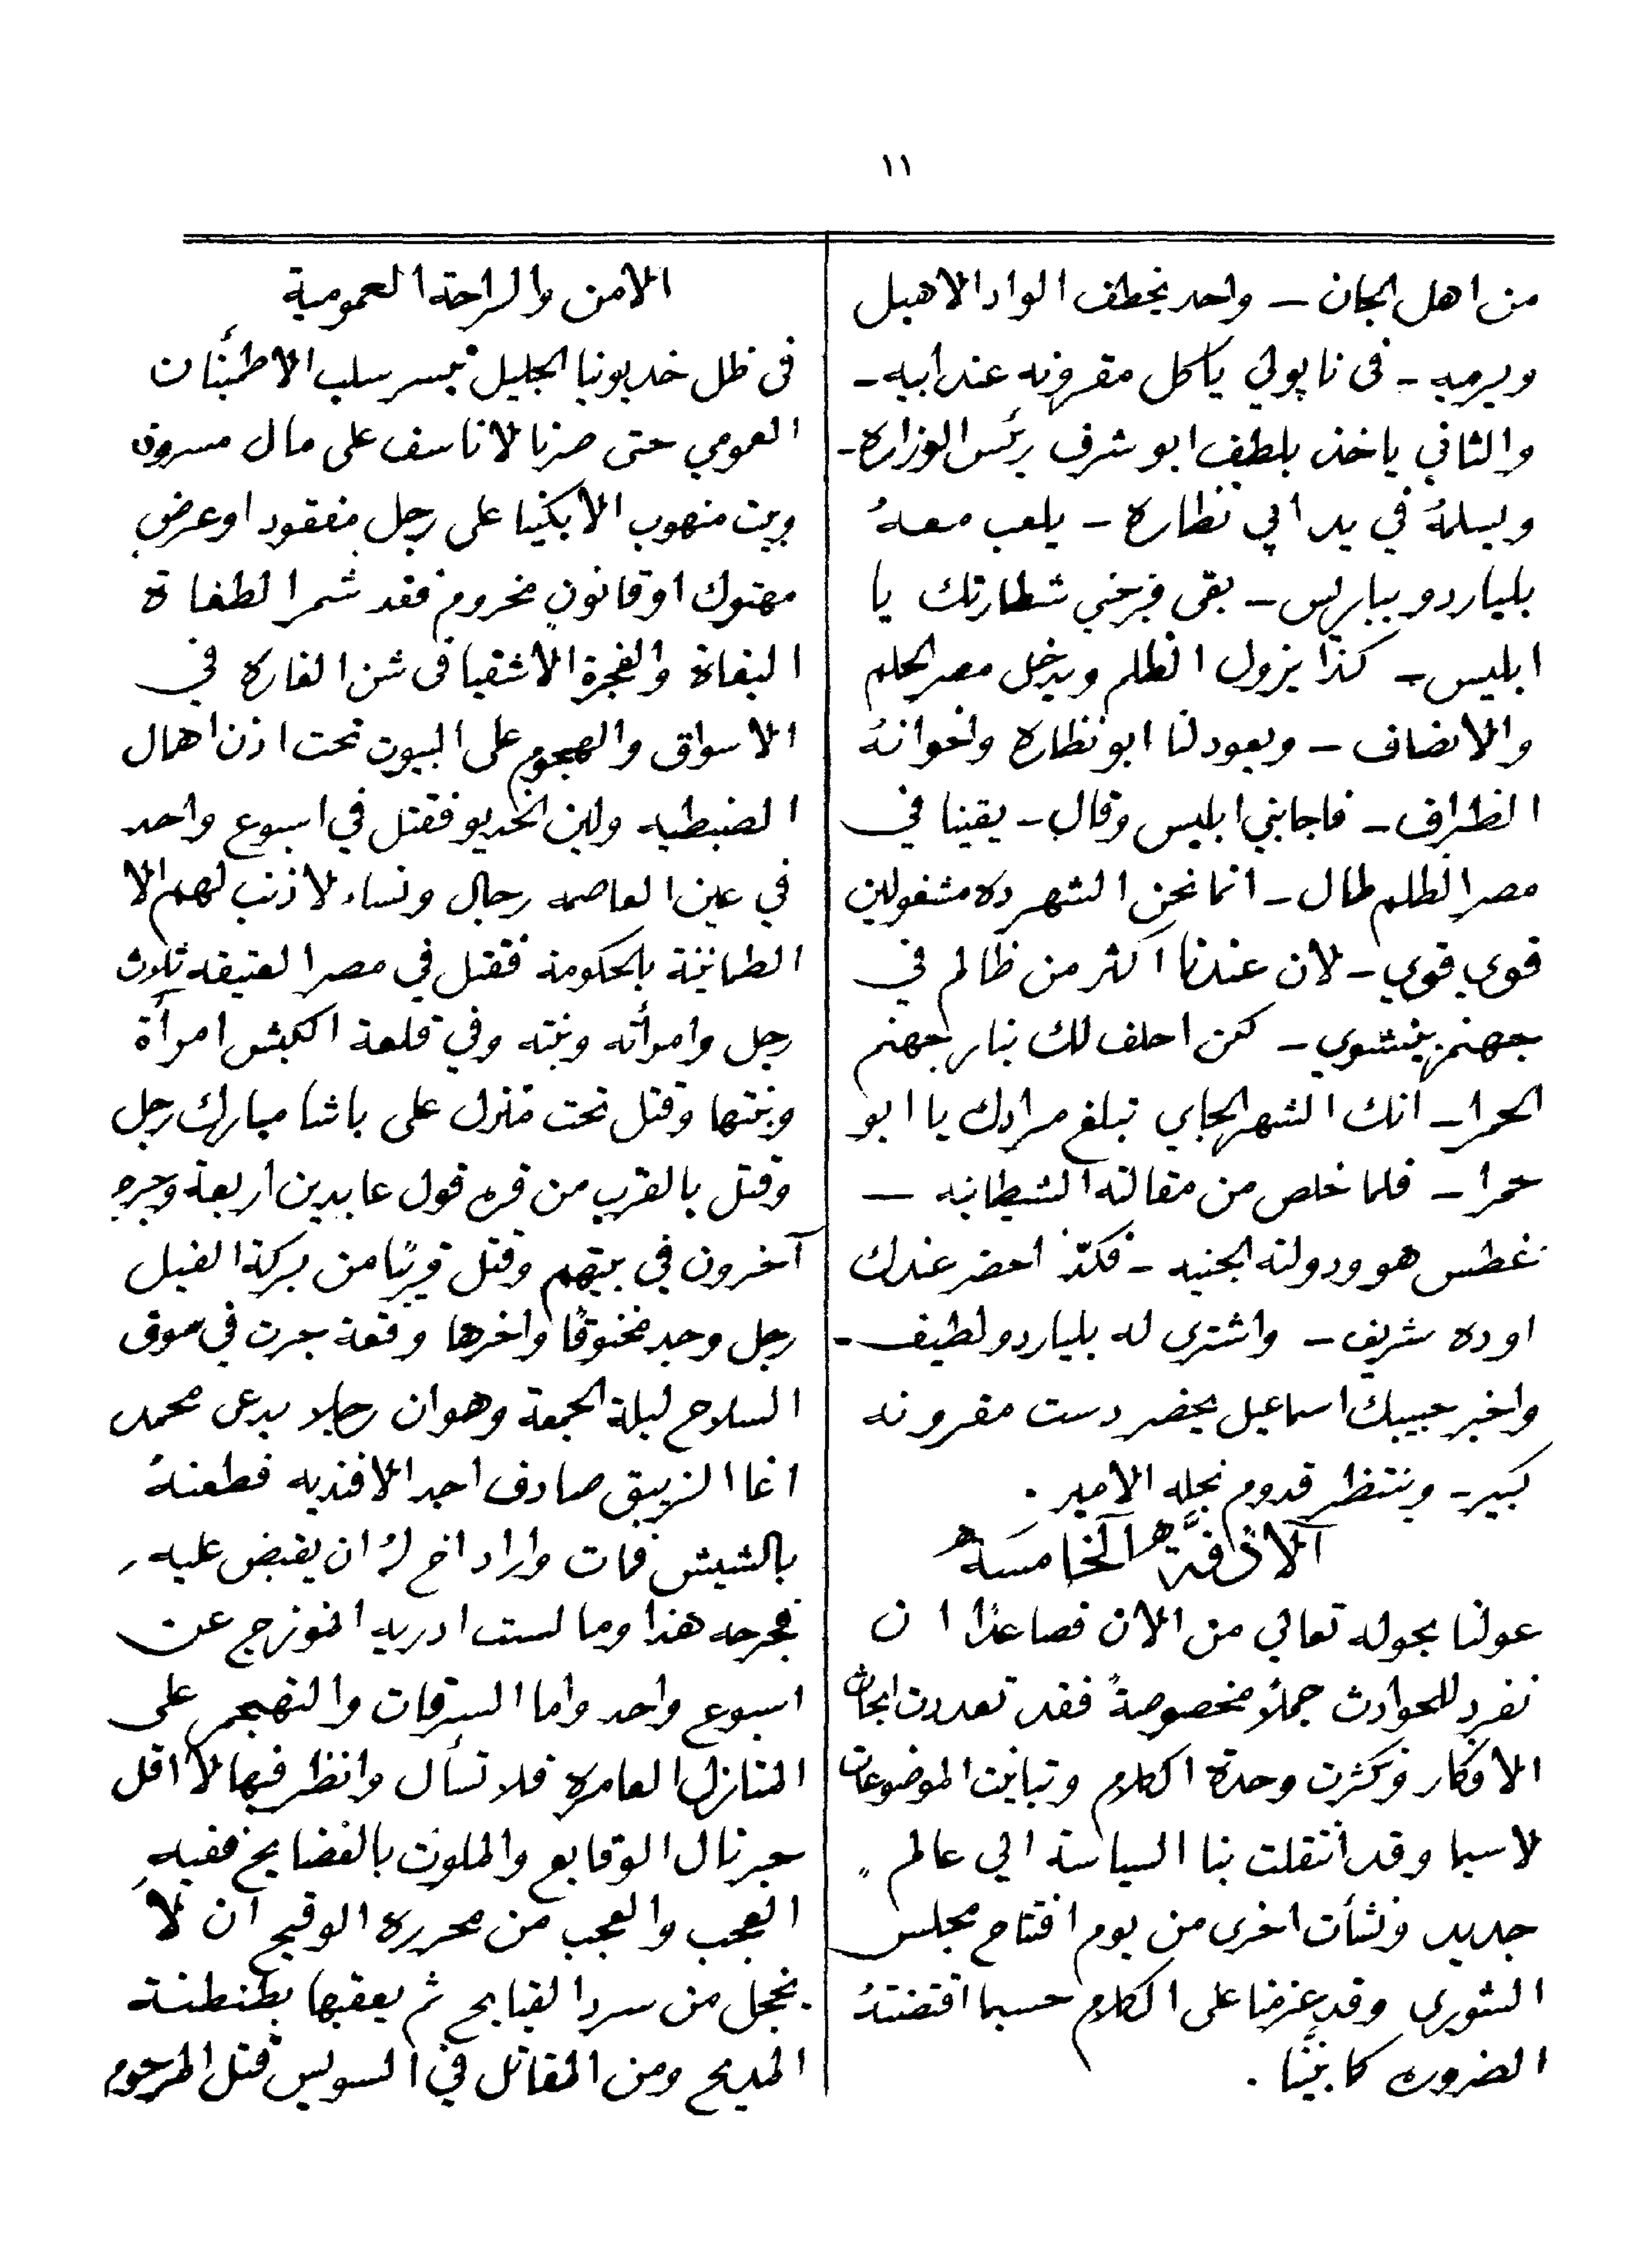 ١١
من اهل الجان ـ واحد يخطف الواد الاهبل
ويرميه ـ فى ناپولي ياكل مقرونه عند ابيه ـ
والثاني ياخذ بلطف ابو شرف رئس الوزاره ـ
ويسلمهُ في يد ابي نظاره ـ يلعب معهُ
بلياردو بباريس ـ بقى فرجني شطارتك يا
ابليس ـ كذا يزول الظلم ويدخل مصر الحلم
والانصاف ـ ويعود لنا ابو نظاره واخوانهُ
الظراف ـ فاجابني ابليس وقال ـ يقينا في
مصر الظلم طال ـ انما نحن الشهر ده مشغولين
قوي قوي ـ لان عندنا اكثر من ظالم في
جهنم بينشوي ـ لكن احلف لك بنار جهنم
الحمرا ـ انك الشهر الجاي تبلغ مرادك يا ابو
حمرا ـ فلما خلص من مقالته الشيطانيه ـ
غطس هو ودولته الجنيه ـ فكدّ احضر عندك
اوده شريف ـ واشترى له بلياردو لطيف ـ
واخبر حبيبك اسماعيل يحضر دست مقرونه
كبير ـ وينتظر قدوم نجله الامير .
الخامسة
عولنا بحوله تعالي من الان فصاعدًا ان
نفرد للحوادث جملاً مخصوصةً فقد تعددت ابحاث
الافكار وكثرت وحدة الكلام وتباينت الموضوعات
لاسيما وقد انتقلت بنا السياسة الي عالم
جديد ونشأت اخرى من يوم افتتاح مجلس
الشورى وقد عزمنا على الكلام حسبما اقتضتهُ
الضروره كما بيّنا .
الامن والراحة العمومية
فى ظل خديوينا الجليل تيسر سلب الاطمئنان
العمومي حتى صرنا لا ناسف على مال مسروق
وبيت منهوب الا بكينا على رجل مفقود او عرض
مهتوك او قانون مخروم فقد شمر الطغاة
البغاة والفجرة الاشقيا فى شن الغاره في
الاسواق والهجوم على البيوت تحت اذن اهمال
الضبطيه ولين الخديو فقتل في اسبوع واحد
في عين العاصمه رجال ونساء لا ذنب لهم الا
الطمانينة بالحكومة فقتل في مصر العتيقه ثلاث
رجل وامرأته وبنته وفي قلعة الكبش امرأة
وبنتها وقتل تحت منزل على باشا مبارك رجل
وقتل بالقرب من قره قول عابدين اربعة وجرح
آخرون في بيتهم وقتل قريبًا من بركة الفيل
رجل وجد مخنوقًا واخرها وقعة جرت في سوق
السلاح ليلة الجمعة وهو ان رجلا يدعى محمد
اغا الزيبق صادف احد الافنديه فطعنهُ
بالشيش فمات واراد اخ لهُ ان يقبض عليه
فجرحه هذا وما لست ادريه انموزج عن
اسبوع واحد واما السرقات والتهجم على
المنازل العامره فلا تسأل وانظر فيها لا اقل
جرنال الوقايع والملوث بالفضايح ففيهِ
العجب والعجب من محرره الوقيح ان لا
يخجل من سرد القبايح ثم يعقبها بطنطنة
المديح ومن المقاتل في السويس قتل المرحوم